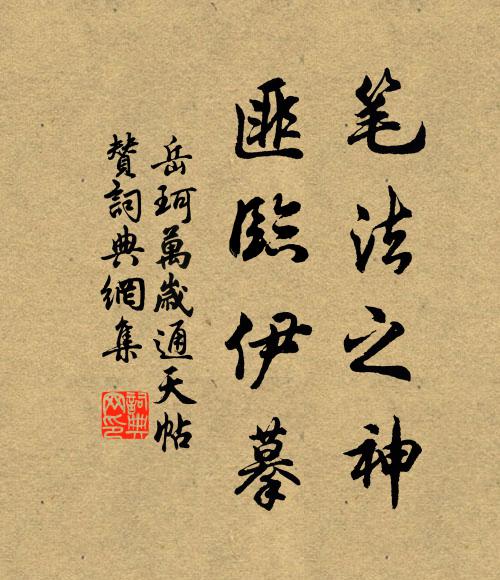 笔法之神
匪臨伊摹
岳珂萬歲通天帖
贊詞典網集
詞典
网印